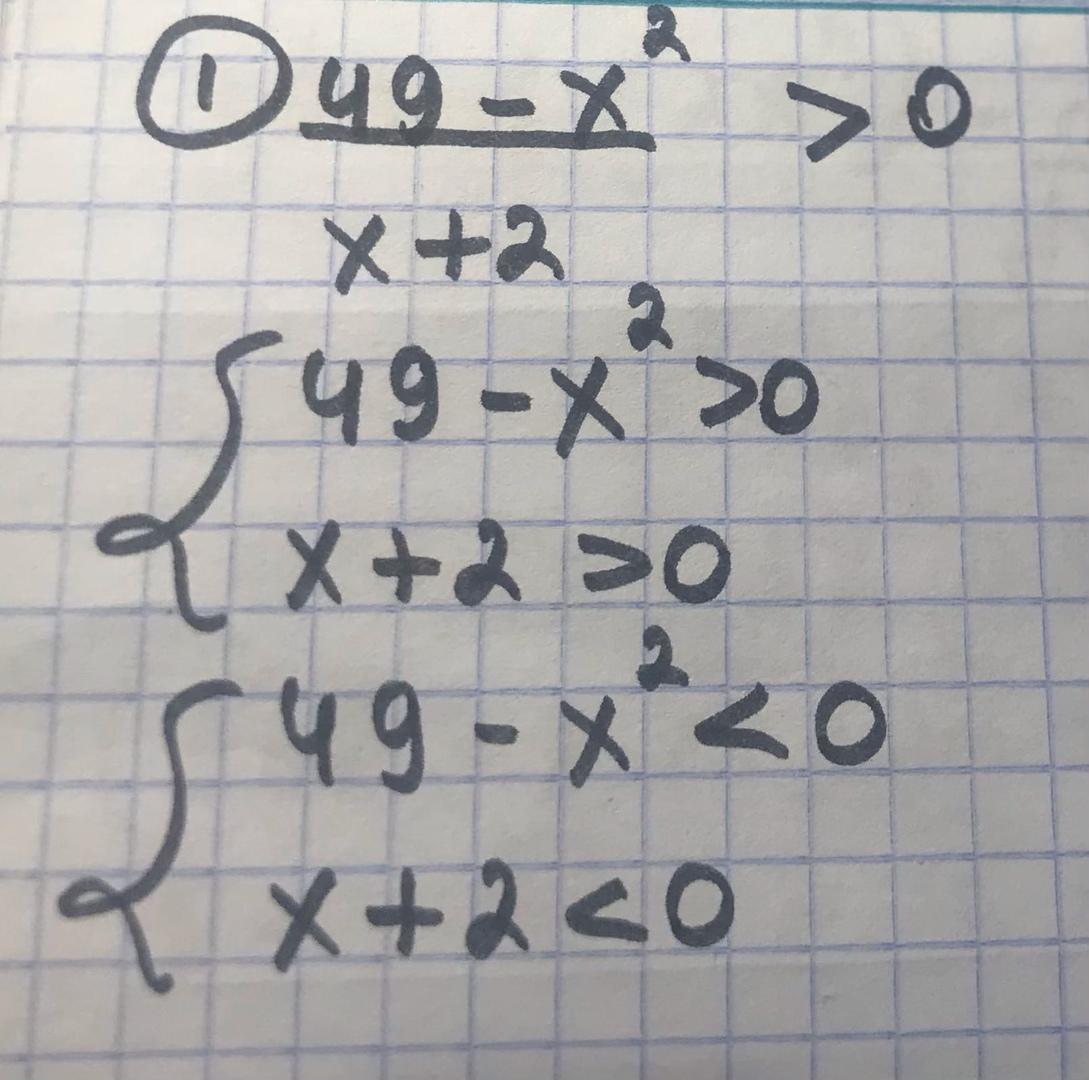 ① 49 - x² > 0
x + 2
{ 49 - x² > 0
x + 2 > 0
{ 49 - x² < 0
x + 2 < 0